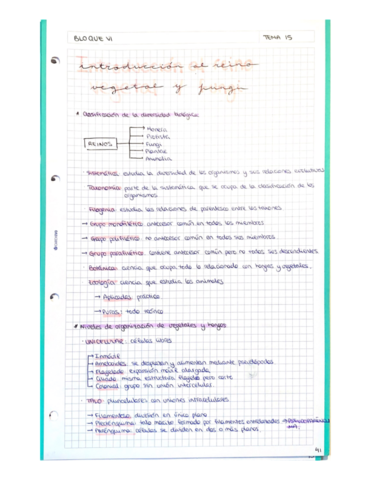 BLOQUE VI
TEMA 15
Introducción al reino
vegetal y fungi
Clasificación de la diversidad biológica
REINOS
Monera
Protista
Fungi
Plantae
Animalia
Sistemática: estudia la diversidad de los organismos y sus relaciones evolutivas
Taxonomía: parte de la sistemática que se ocupa de la clasificación de los
organismos
Filogenia: estudia las relaciones de parentesco entre los taxones
→ Grupo monofilético: antecesor común en todos los miembros
→ Grupo polifilético: no antecesor común en todos sus miembros
→ Grupo parafilético: contiene antecesor común pero no todos sus descendientes.
Botánica: ciencia que ocupa todo lo relacionado con hongos y vegetales.
Zoología: ciencia que estudia los animales
→ Aplicada: práctica
→ Pura: todo teórico
Niveles de organización de vegetales y hongos
UNICELULAR: células
→ Inmóvil
→ Ameboides: se desplazan y alimentan mediante pseudópodos
→ Flagelado: expansión móvil alargada
→ Ciliado: misma estructura flagelo pero corto
→ Colonial: grupo sin unión intercelular
TALO: pluricelulares con uniones intercelulares
→ Filamentoso: división en único plano
→ Plecténquima: talo macizo formado por filamentos
→ Parénquima: células se dividen en dos o más planos.
41